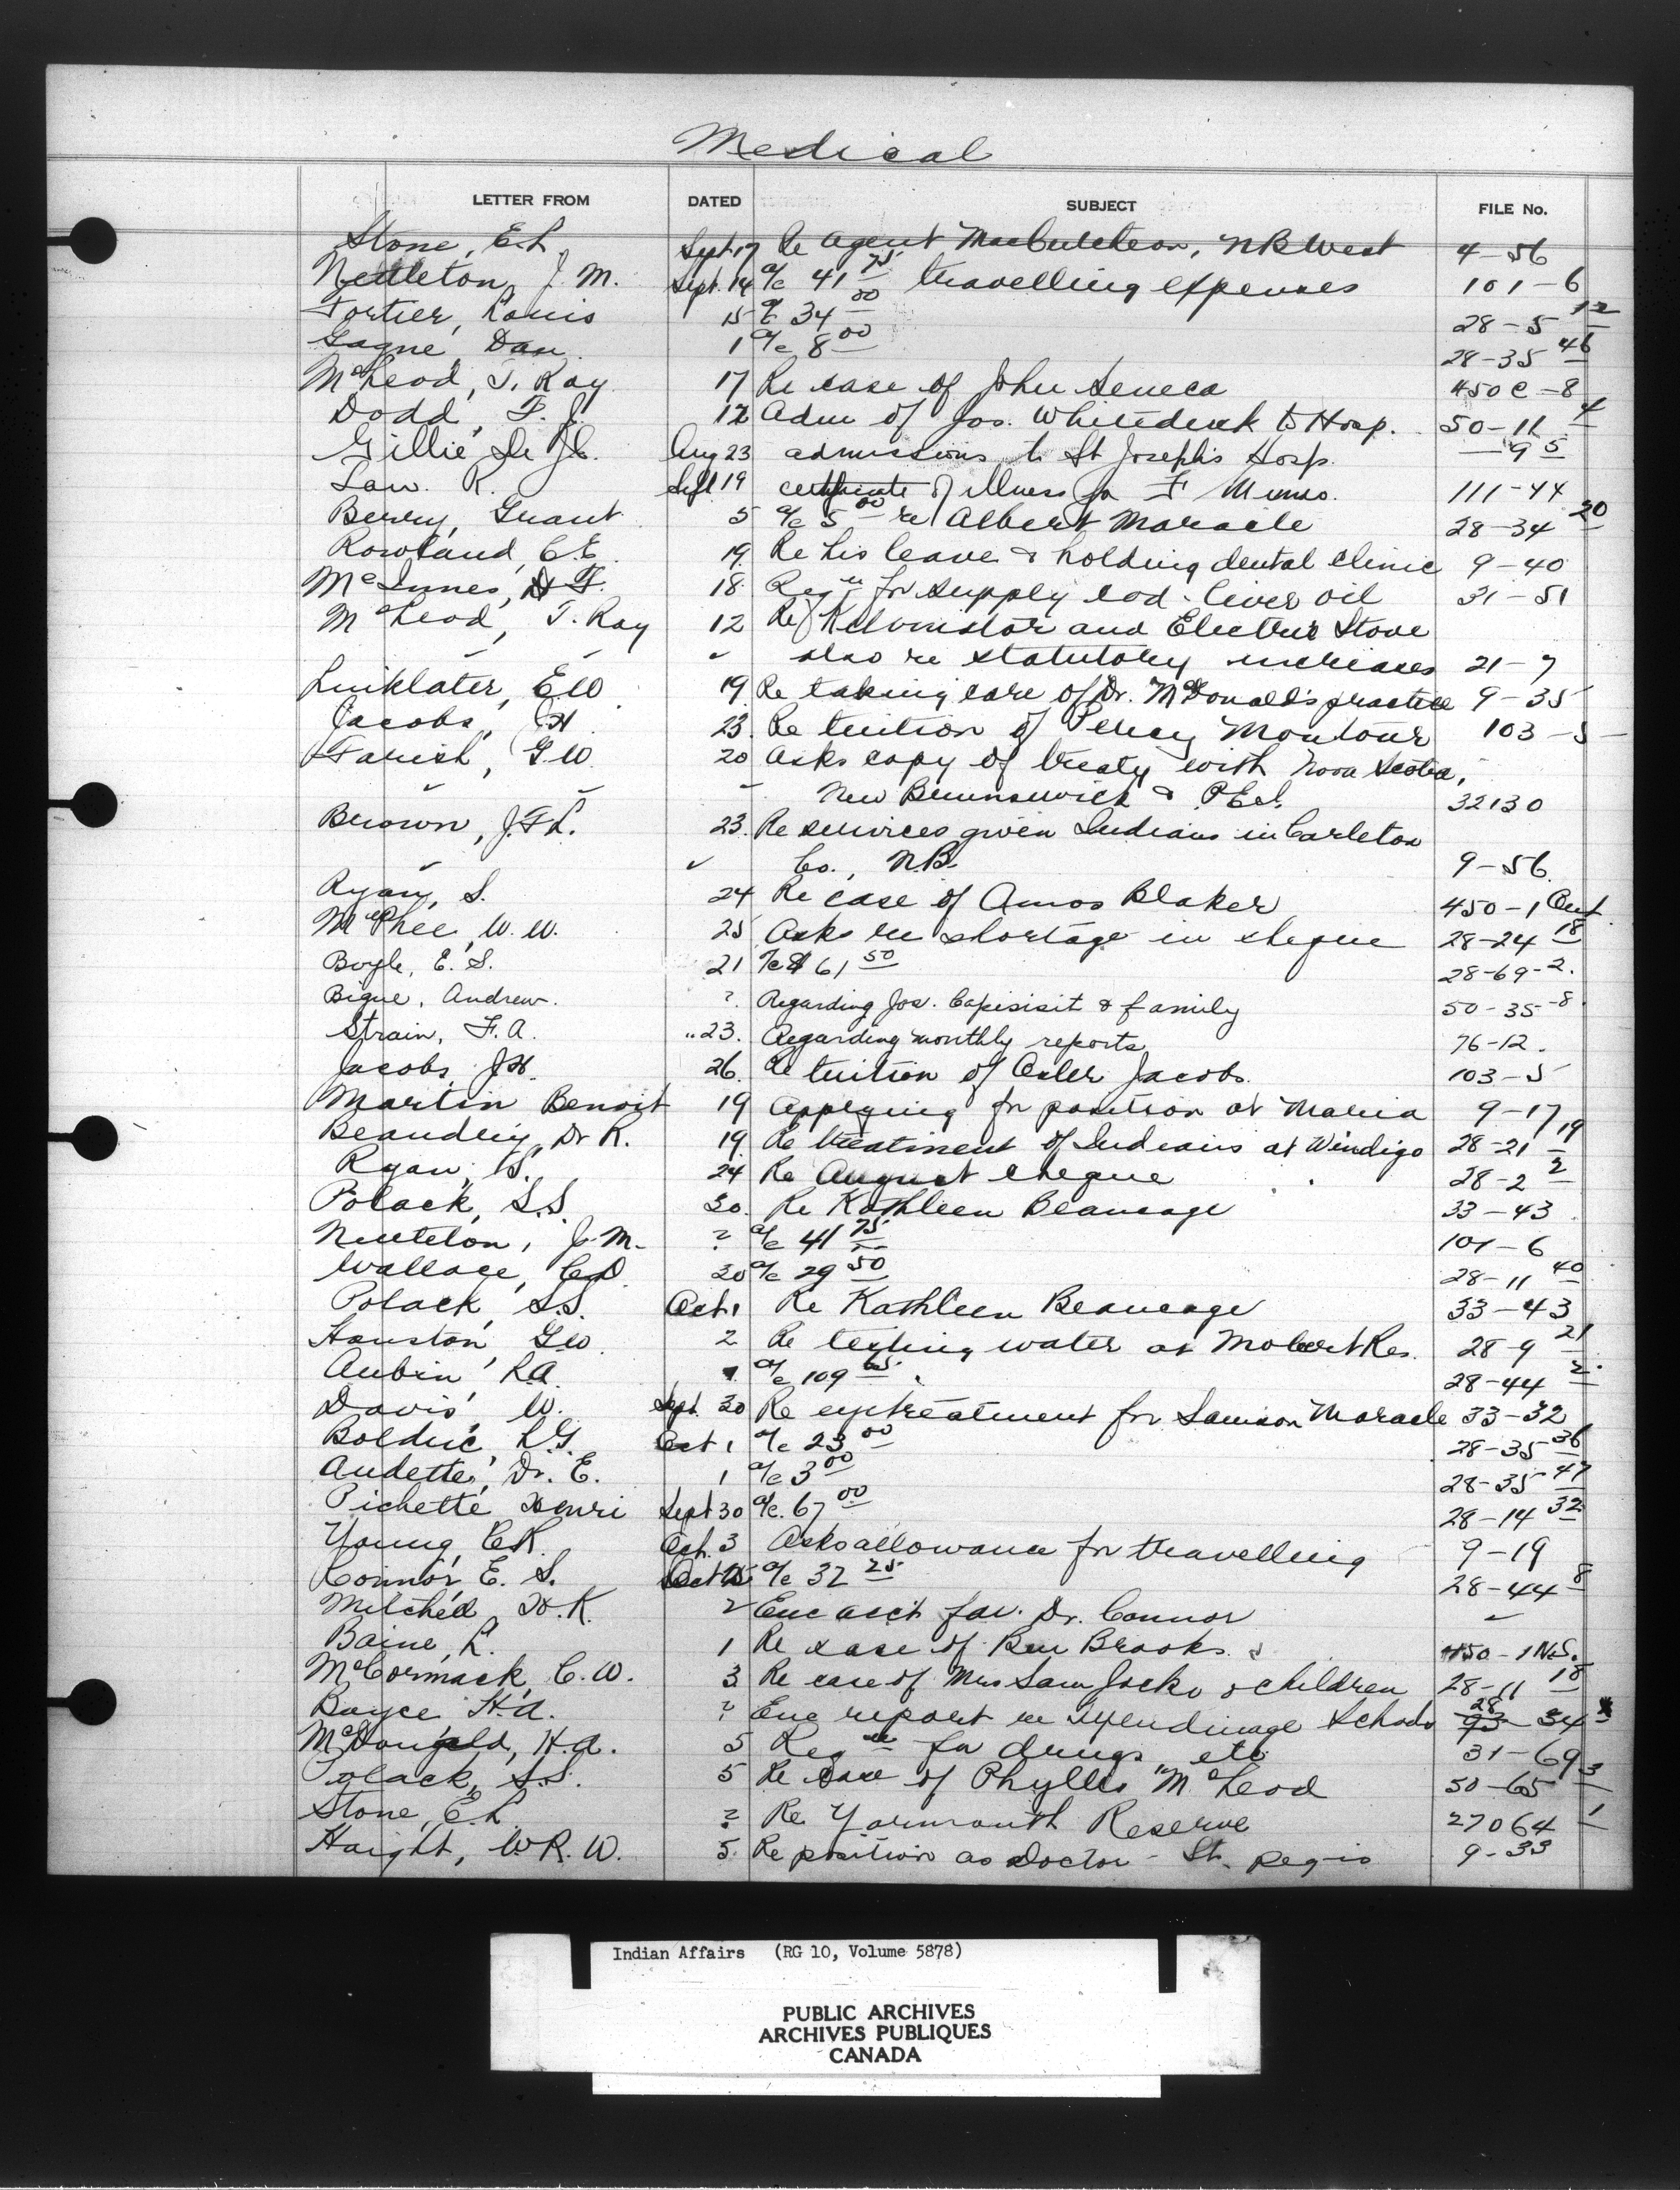 Medical
LETTER FROM DATED SUBJECT FILE No.
Stone, E.L. Sept 17 Re Agent NB West 4-56
Nettleton, J. M. Sept. 14 a/c 41 75 travelling expenses 101-6
Fortier, Louis 15 a/c 34 00 28-5 12
Gagne, Dan 1 a/c 8 00 28-35 46
McLeod, T. Ray 17 Re case of John Seneca 450C-8
Dodd, F. J. 12 Adm of Jos. Whiteduck to Hosp. 50-11 4
Gillie Aug 23 admissions to St Joseph's Hosp. -9 5
Law. R. Sept 19 certificate of illness for F Munro. 111-44
Berry, Grant 5 a/c 5 00 re Albert Maracle 28-34 20
Rowland, C.E. 19. Re his leave & holding dental clinic 9-40
McInnes, 18 Reqn for supply cod-liver oil 31-51
McLeod, T. Ray 12 Re Kelvinator and Electric Stove
also re statutory increases 21-7
Linklater, E W 19. Re taking care of Dr. McDonald's practice 9-35
Jacobs, J H 23. Re tuition of Percy Montour 103-5
Farish, G.W. 20 Asks copy of treaty with Nova Scotia,
New Brunswick & P.E.I. 32130
Brown, J.F.L. 23. Re services given Indians in Carleton
Co., N.B. 9-56.
Ryan, S. 24 Re case of Amos Blaker 450-1 Ont
McPhee, W. W. 25 Asks re shortage in cheque 28-24 18
Boyle, E. S. 21 a/c $61 50 28-69-2.
Bigue, Andrew. ?. Regarding Jos. Capisisit & family 50-35-8.
Strain, F.A. " 23. Regarding monthly reports 76-12.
Jacobs J H. 26. Re tuition of Osler Jacobs. 103-5
Martin Benoit 19 Applying for position at Maria 9-17
Beaudry, Dr R. 19. Re treatment of Indians at Windigo 28-21 19
Ryan, S. 24 Re August cheque 28-2 2
Polack, S.S. 30. Re Kathleen Beaucage 33-43
J.M. ? a/c 41 75 101-6
Wallace, C.D. 30 a/c 29 50 28-11 40
Polack, S.S. Oct 1 Re Kathleen Beaucage 33-43
Houston, G.W. 2 Re testing water at Mobert Res. 28-9 21
Aubin, L.A. a/c 109 65 28-44 2
Davis, W. Sept. 30 Re eye treatment for Samson Maracle 33-32
Bolduc, L.G. Oct 1 a/c 23 00 28-35 36
Audette, Dr. E. 1 a/c 3 00 28-35-47
Pichette Henri Sept 30 a/c. 67 00 28-14 32
Young, C.R. Oct. 3 Asks allowance for travelling 9-19
Connor, E. S. Oct a/c 32 25 28-44 8
Mitchell, H. K. 2 Enc acct fav. Dr. Connor
Baine, L. 1 Re case of Ben Brooks. 450-1 N.S.
McCormack, C. W. 3 Re case of Mrs Sam Jocko & children 28-11 18
Boyce H.A. ? Enc report re Mendinage Schools 28 34
McDougald, H. A. 5 Reqn for drugs, etc 31-69
Polack, S.S. 5 Re case of Phyllis McLeod 50-65 3
Stone, E.L. ? Re Yarmouth Reserve 27064 1
Haight, W.R.W. 5. Re position as doctor - St. Regis 9-33
Indian Affairs (RG 10, Volume 5878)
PUBLIC ARCHIVES
ARCHIVES PUBLIQUES
CANADA